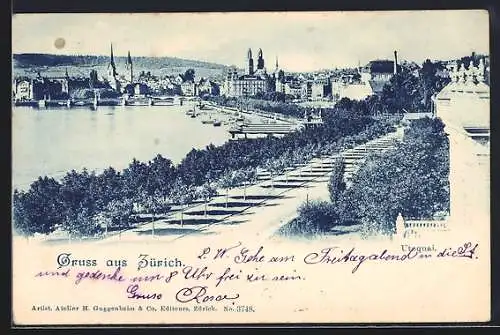 Utoquai.
Gruss aus Zürich.
L. W. Gehe am Freitagabend in die St.
und gedenke um 8 Uhr frei zu sein.
Gruss Rosa
Artist. Atelier H. Guggenheim & Co, Editeurs, Zürich. No. 3748.